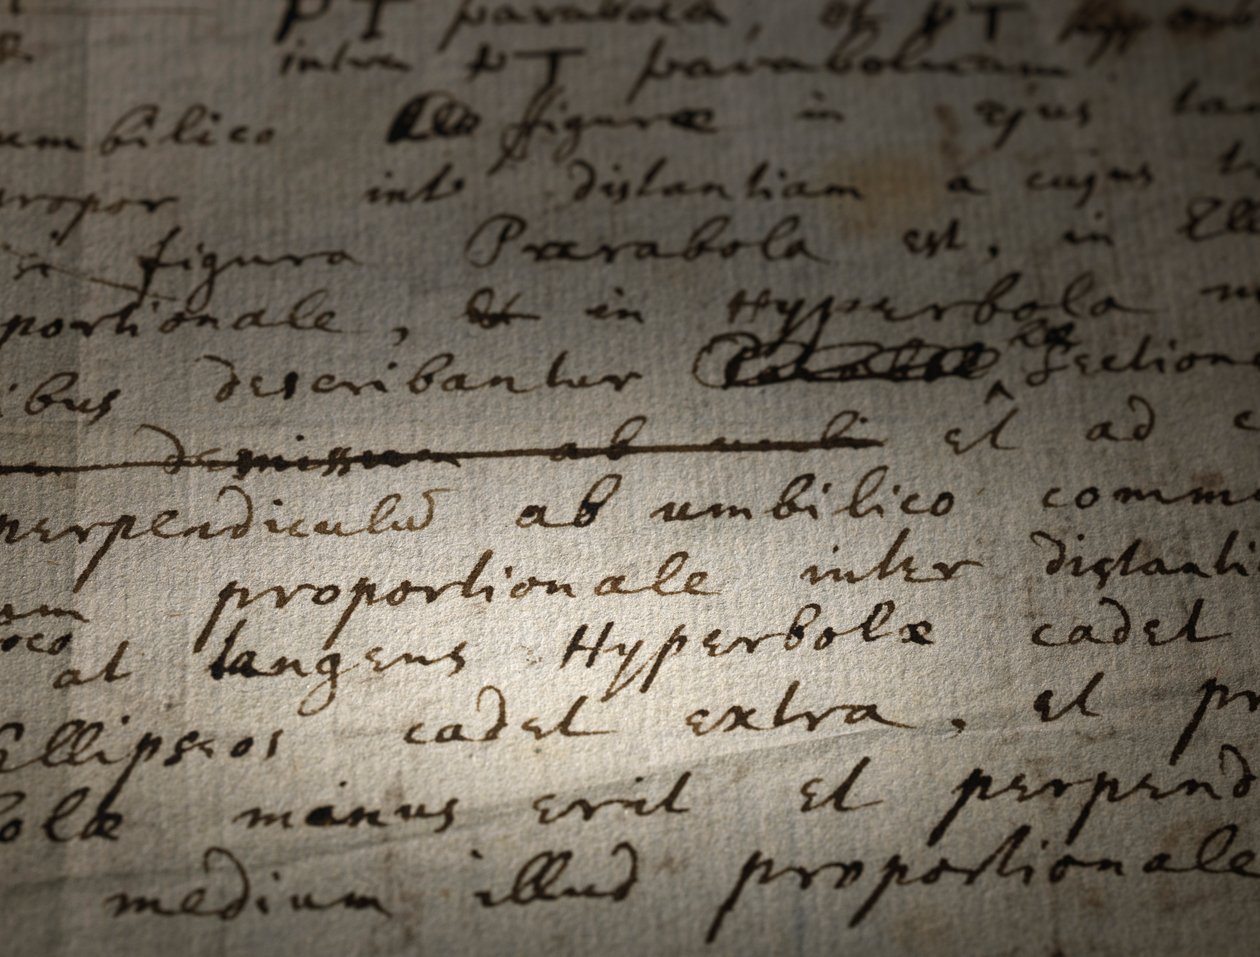 PT parabola, et PT
intra PT parabolicam
umbilico figuræ in ejus
propor int distantiam a cujus
figura Parabola est, in Ell
portionale, et in Hyperbola
ibus describantur Section
demissum ab umbi et ad
perpendiculū ab umbilico comm
proportionale inter distanti
at tangens Hyperbolæ cadet
Ellipseos cadet extra, et pr
bolæ minus erit et perpend
medium illud proportionale